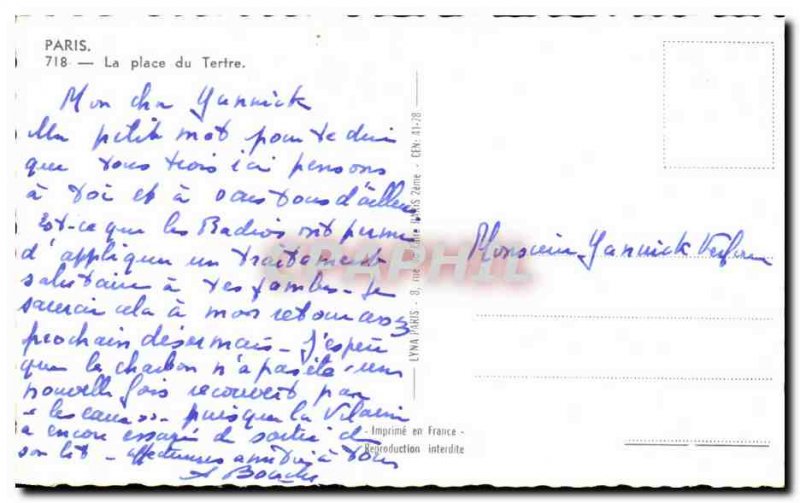 PARIS.
718 — La place du Tertre.
Mon cher Yannick
Un petit mot pour te dire
que tous trois ici pensons
à toi et à vous tous d'ailleurs.
Est-ce que les Radios ont permis
d'appliquer un traitement
salutaire à tes jambes - Je
saurai cela à mon retour assez
prochain désormais - J'espère
que le charbon n'a pas été une
nouvelle fois recouvert par
"les eaux" - puisque la Vilaine
a encore essayé de sortir de
son lit - affectueuses amitiés à tous
A
LYNA PARIS - 8, rue du Caire PARIS 2ème - CEN: 41-28
CPAPHIL
Monsieur Yannick
- Imprimé en France -
Reproduction interdite